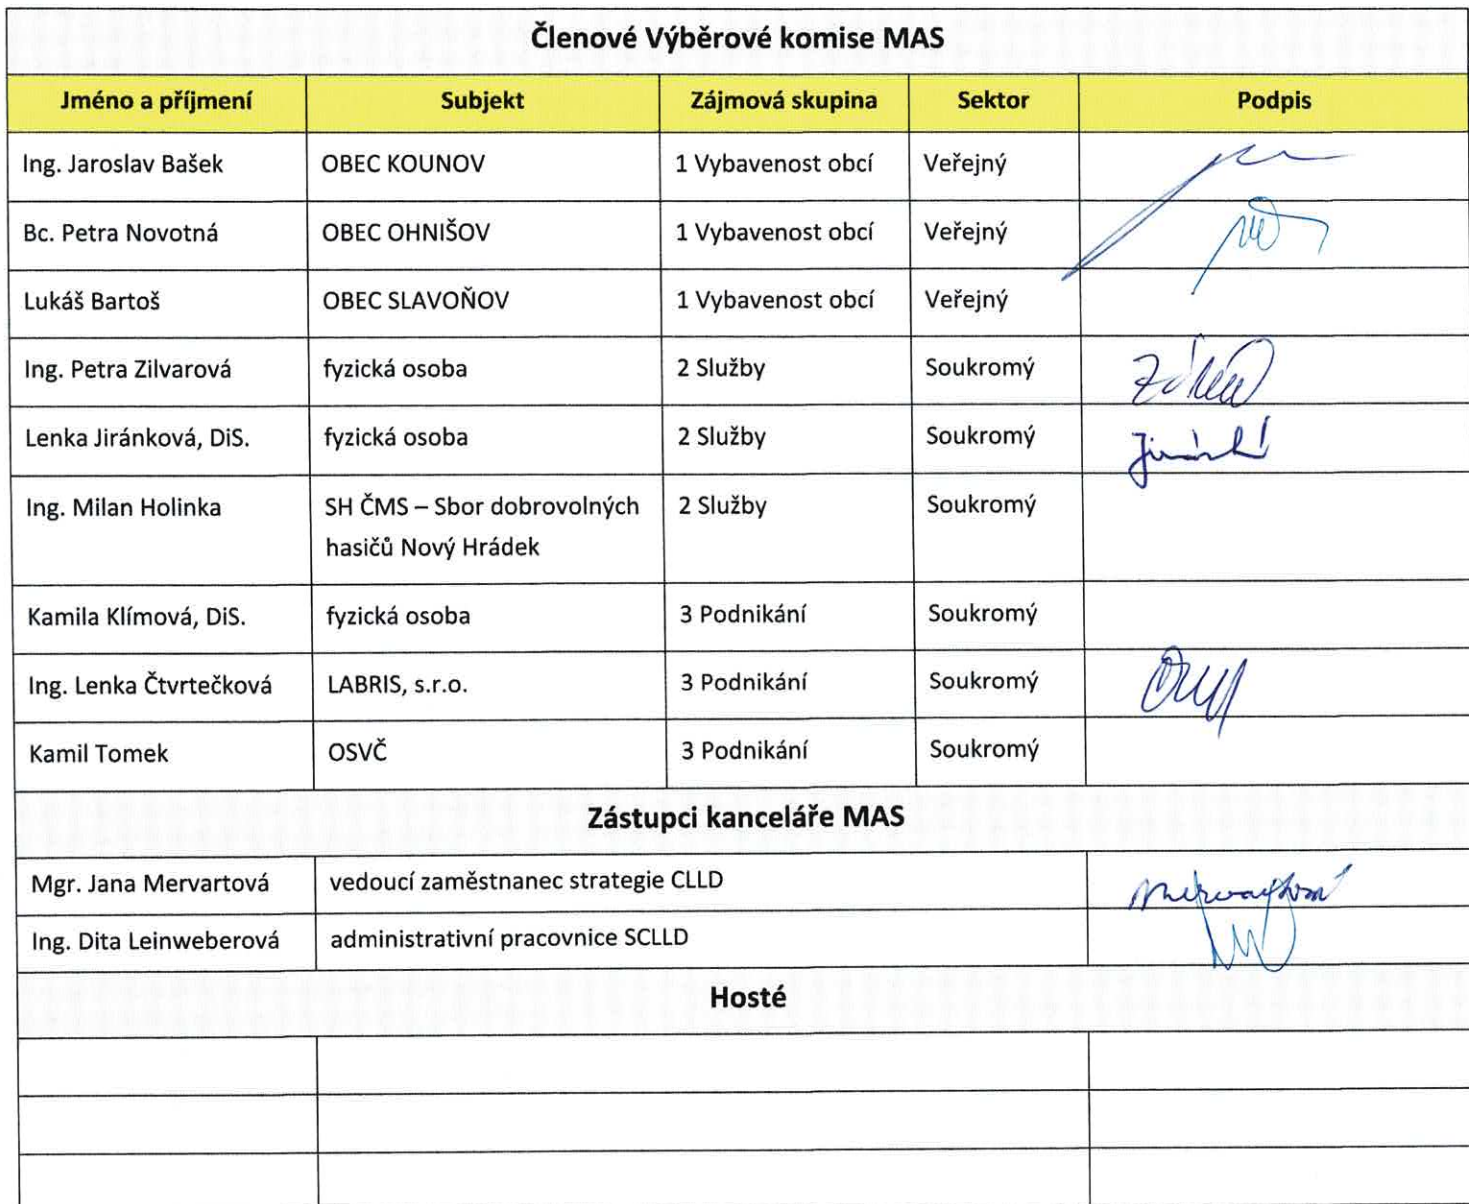 Členové Výběrové komise MAS
Jméno a příjmení Subjekt Zájmová skupina Sektor Podpis
Ing. Jaroslav Bašek OBEC KOUNOV 1 Vybavenost obcí Veřejný
Bc. Petra Novotná OBEC OHNIŠOV 1 Vybavenost obcí Veřejný
Lukáš Bartoš OBEC SLAVOŇOV 1 Vybavenost obcí Veřejný
Ing. Petra Zilvarová fyzická osoba 2 Služby Soukromý
Lenka Jiránková, DiS. fyzická osoba 2 Služby Soukromý
Ing. Milan Holinka SH ČMS – Sbor dobrovolných 2 Služby Soukromý
hasičů Nový Hrádek
Kamila Klímová, DiS. fyzická osoba 3 Podnikání Soukromý
Ing. Lenka Čtvrtečková LABRIS, s.r.o. 3 Podnikání Soukromý
Kamil Tomek OSVČ 3 Podnikání Soukromý
Zástupci kanceláře MAS
Mgr. Jana Mervartová vedoucí zaměstnanec strategie CLLD
Ing. Dita Leinweberová administrativní pracovnice SCLLD
Hosté